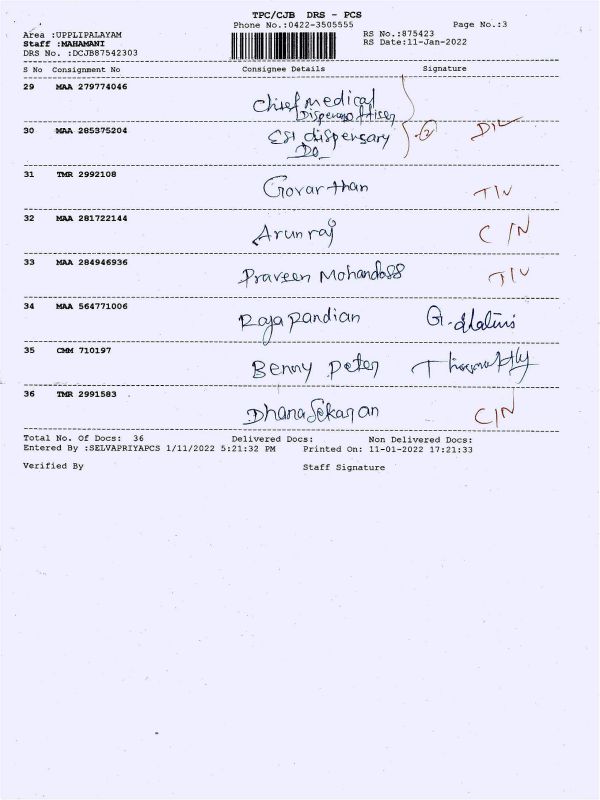 TPC/CJB DRS - PCS
Phone No.:0422-3505555 Page No.:3
Area :UPPLIPALAYAM RS No.:875423
Staff :MAHAMANI RS Date:11-Jan-2022
DRS No. :DCJB87542303
S No Consignment No Consignee Details Signature
29 MAA 279774046 Chief Medical
30 MAA 285375204 ESI dispensary
Do
31 TMR 2992108 Govarthan
32 MAA 281722144 Arunraj C/N
33 MAA 284946936 Praveen Mohandoss
34 MAA 564771006 Rajapandian
35 CMM 710197 Benny Peter
36 TMR 2991583 Dhanasekaran C/N
Total No. Of Docs: 36 Delivered Docs: Non Delivered Docs:
Entered By :SELVAPRIYAPCS 1/11/2022 5:21:32 PM Printed On: 11-01-2022 17:21:33
Verified By Staff Signature